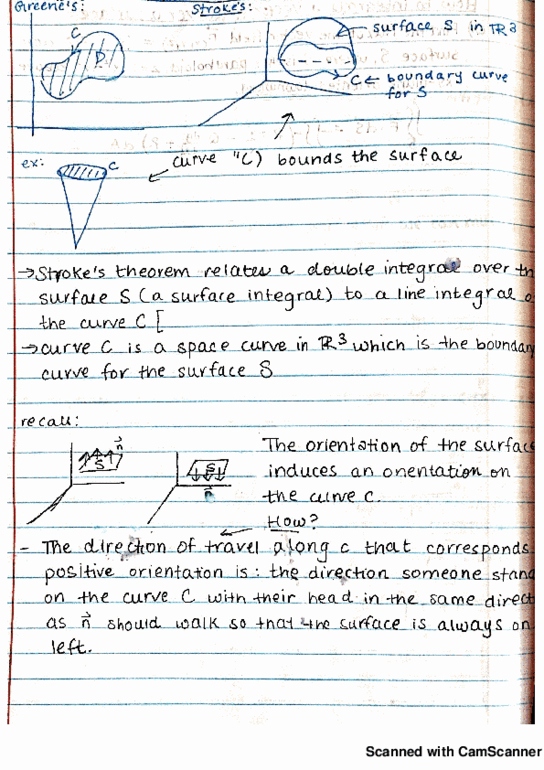 Greene's:
Stroke's:
C
D
surface S in ℝ³
C ← boundary curve
for S
ex:
C
curve "C) bounds the surface
→ Stroke's theorem relates a double integral over th
surface S (a surface integral) to a line integral o
the curve C [
→ curve C is a space curve in ℝ³ which is the boundary
curve for the surface S
recall:
n⃗
S
S
n⃗
The orientation of the surfac
induces an orientation on
the curve C.
How?
- The direction of travel along c that corresponds
positive orientation is: the direction someone stand
on the curve C with their head in the same direct
as n⃗ should walk so that the surface is always on
left.
Scanned with CamScanner